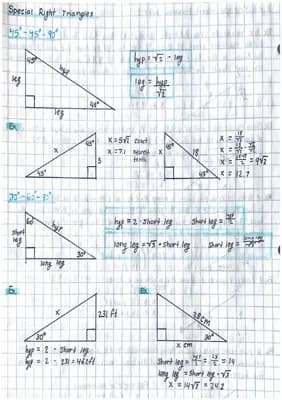 Special Right Triangles
45°-45°-90°
45°
hyp
leg
45°
leg
hyp = √2 · leg
leg = hyp/√2
Ex.
x
45°
5
45°
x = 5√2 Exact
x = 7.1 Nearest tenth
x
45°
18
45°
x = 18/√2
x = 18/√2 · √2/√2
x = 18√2/2 = 9√2
x = 12.7
30°-60°-90°
60°
hyp
short leg
30°
long leg
hyp = 2 · short leg
short leg = hyp/2
long leg = √3 · short leg
short leg =
Ex.
x
231 ft
30°
hyp = 2 · short leg
hyp = 2 · 231 = 462 ft
Ex.
28cm
30°
x cm
short leg = hyp/2 = 28/2 = 14
long leg = short leg · √3
x = 14√3 = 24.2